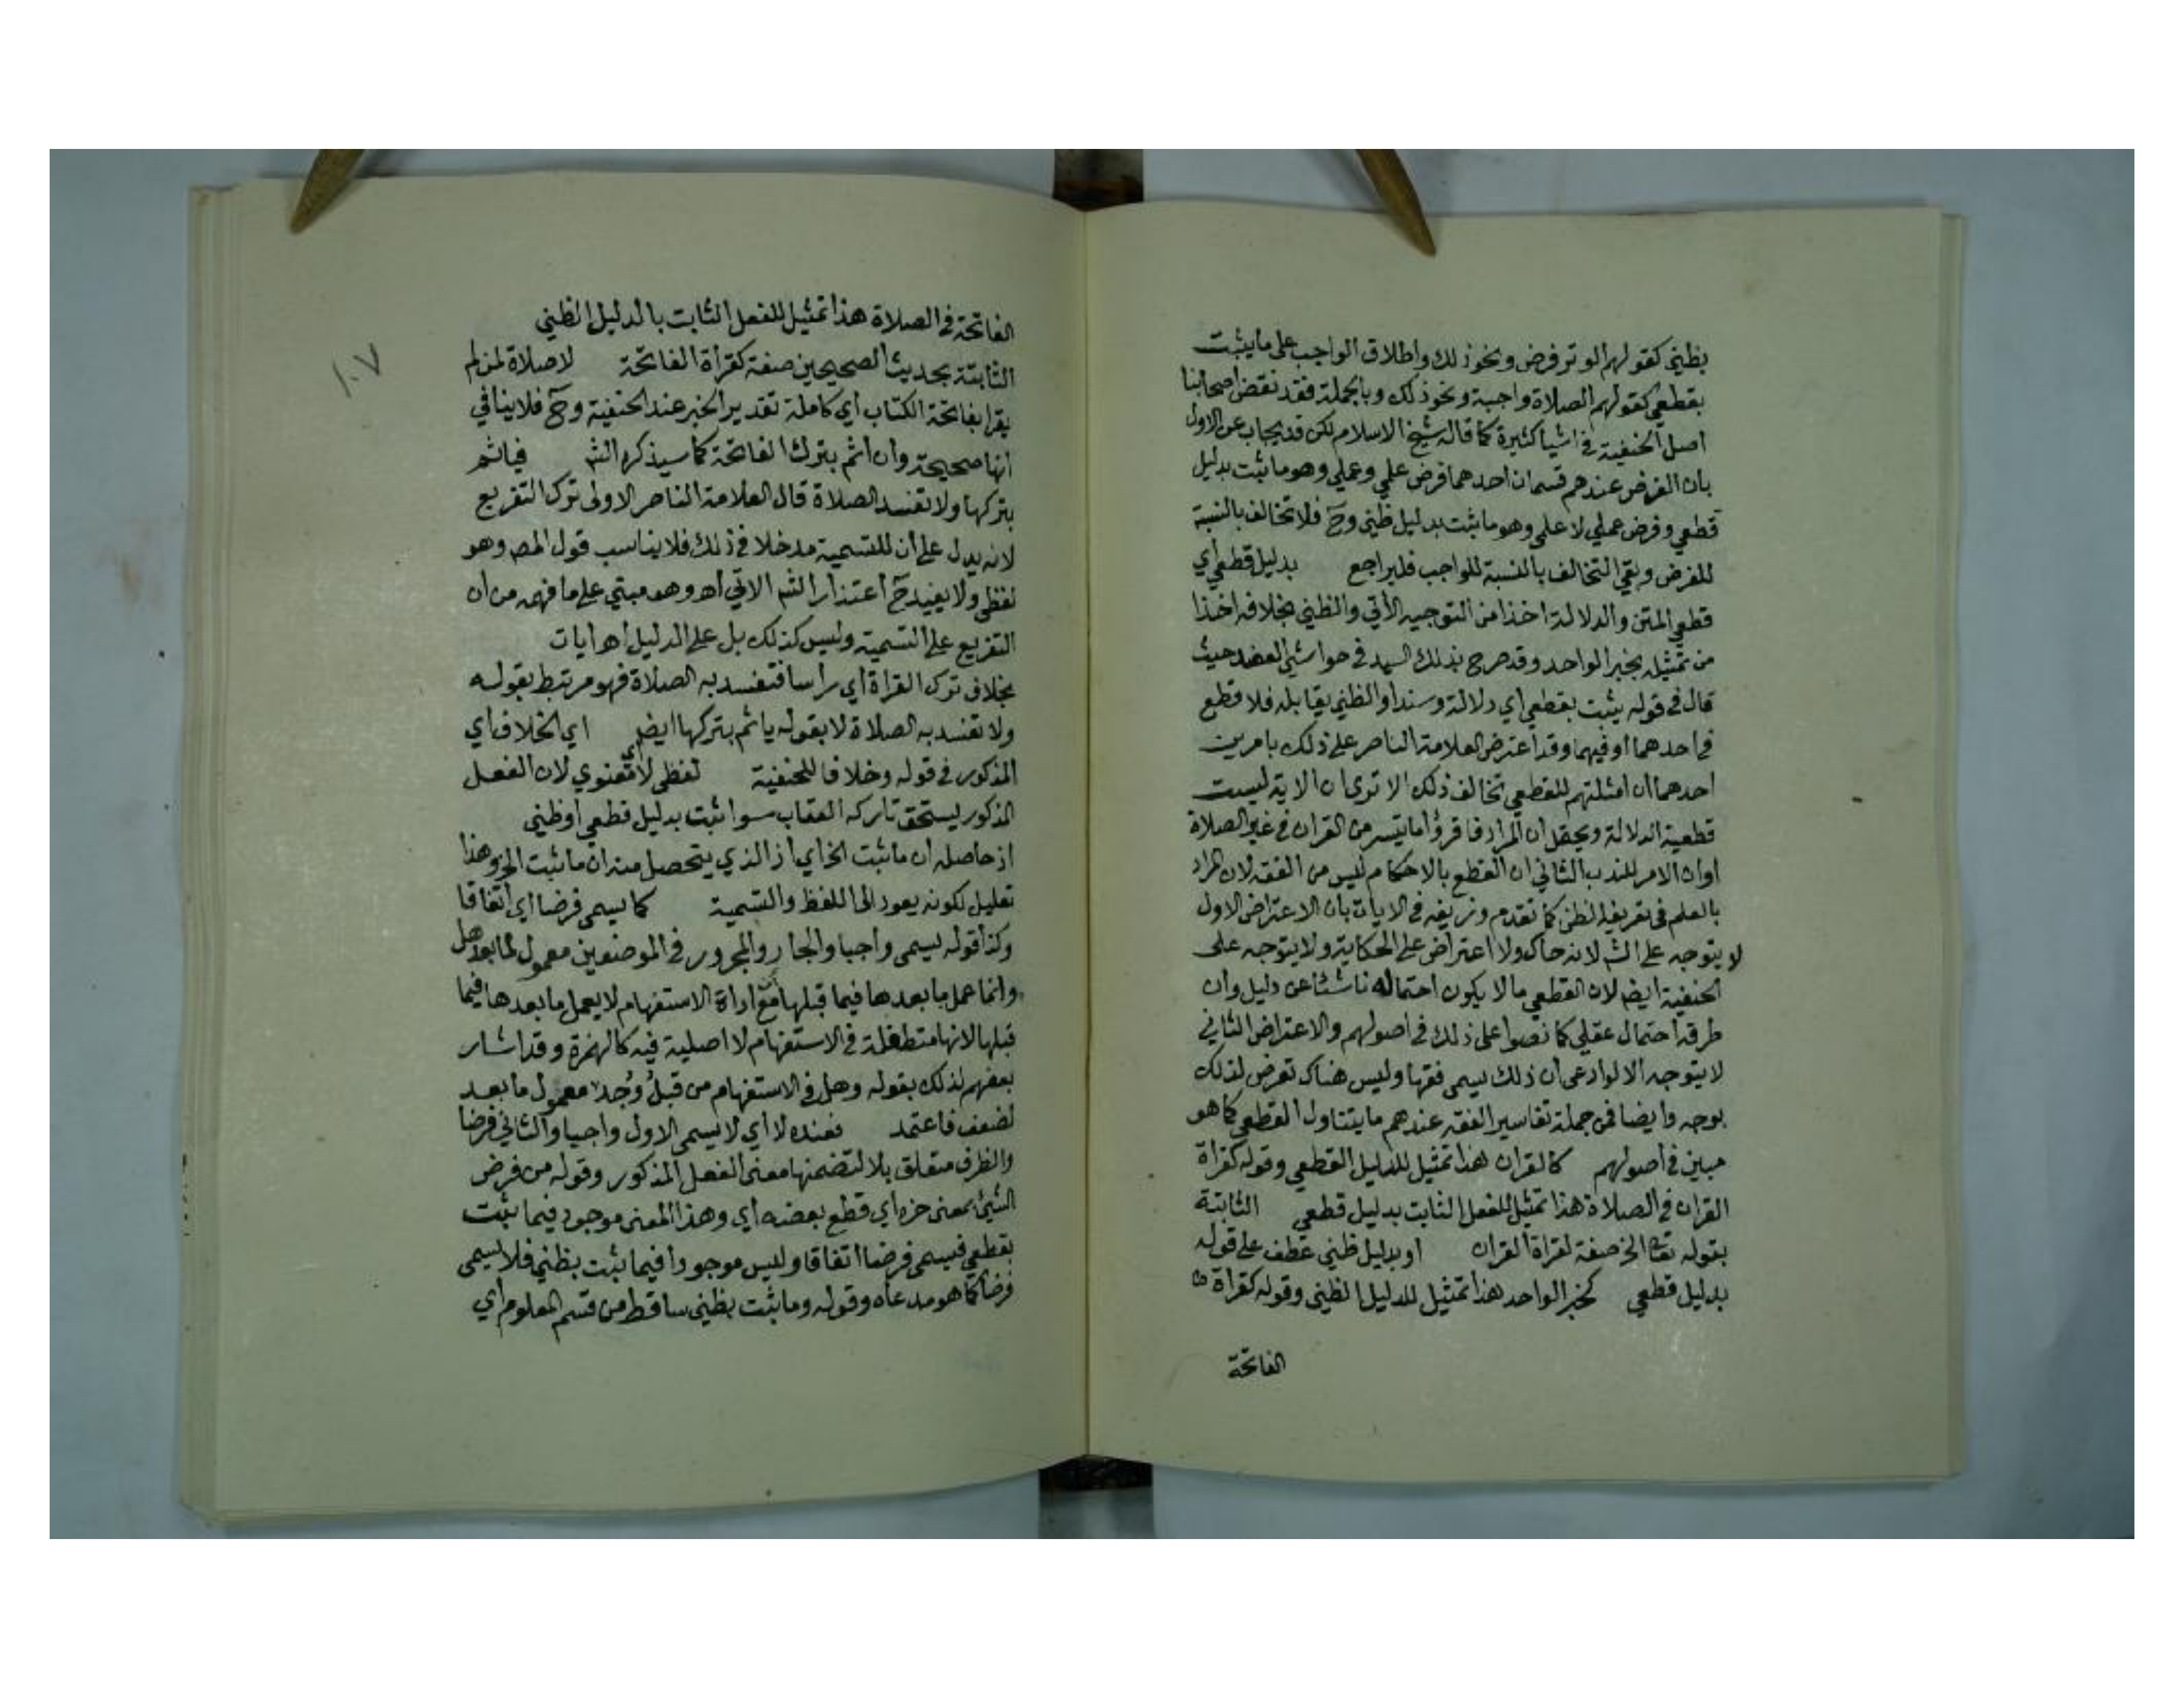 بظني كقولهم الوتر فرض ونحو ذلك واطلاق الواجب على ما يثبت
بقطعي كقولهم الصلاة واجبة ونحو ذلك وبالجملة فقد نقض اصحابنا
اصل الحنفية في اشيا كثيرة كما قاله شيخ الاسلام لكن قد يجاب عن الاول
بان الفرض عندهم قسمان احدهما فرض علمي وعملي وهو ما ثبت بدليل
قطعي وفرض عملي لا علمي وهو ما ثبت بدليل ظني وح فلا تخالف بالنسبة
للفرض وبقي التخالف بالنسبة للواجب فليراجع بدليل قطعي اي
قطعي المتن والدلالة اخذا من التوجيه الاتي والظني بخلافه اخذا
من تمثيله بخبر الواحد وقد صرح بذلك السيد في حواشي العضد حيث
قال في قوله يثبت بقطعي اي دلالة وسندا والظني يقابله فلا قطع
في احدهما او فيهما وقد اعترض العلامة الناصر على ذلك بامرين
احدهما ان امثلتهم للقطعي تخالف ذلك الا ترى ان الاية ليست
قطعية الدلالة ويحتمل ان المراد فاقرؤا ما تيسر من القران في غير الصلاة
اوان الامر للندب الثاني ان القطع بالاحكام ليس من الفقه لان المراد
بالعلم في تعريفه الظن كما تقدم وزيفه في الايات بان الاعتراض الاول
لا يتوجه على الش لانه حاك ولا اعتراض على الحكاية ولا يتوجه على
الحنفية ايضا لان القطعي ما لا يكون احتماله ناشئا عن دليل وان
طرقه احتمال عقلي كما نصوا على ذلك في اصولهم والاعتراض الثاني
لا يتوجه الا لو ادعى ان ذلك يسمى فقها وليس هناك تعرض لذلك
بوجه وايضا فمن جملة تفاسير الفقه عندهم ما يتناول القطعي كما هو
مبين في اصولهم كالقران هذا تمثيل للدليل القطعي وقوله كقراة
القران في الصلاة هذا تمثيل للفعل الثابت بدليل قطعي الثابتة
بقوله تعا الخ صفة لقراة القران او بدليل ظني عطف على قوله
بدليل قطعي كخبر الواحد هذا تمثيل للدليل الظني وقوله كقراة
الفاتحة
١٠٧
الفاتحة في الصلاة هذا تمثيل للفعل الثابت بالدليل الظني
الثابتة بحديث الصحيحين صفة كقراة الفاتحة لا صلاة لمن لم
يقرا بفاتحة الكتاب اي كاملة تقدير الخبر عند الحنفية وح فلا ينافي
انها صحيحة وان اثم بترك الفاتحة كما سيذكره الش فياثم
بتركها ولا تفسد الصلاة قال العلامة الناصر الاولى ترك التفريع
لانه يدل على ان للتسمية مدخلا في ذلك فلا يناسب قول المص وهو
لفظي ولا يفيد ح اعتذار الش الاتي اه وهو مبني على ما فهمه من ان
التفريع على التسمية وليس كذلك بل على الدليل اه ايات
بخلاف ترك القراة اي راسا فتفسد به الصلاة فهو مرتبط بقوله
ولا تفسد به الصلاة لا بقوله ياثم بتركها ايضا اي الخلاف اي
المذكور في قوله وخلافا للحنفية لفظي اي لا معنوي لان الفعل
المذكور يستحق تاركه العقاب سوا ثبت بدليل قطعي او ظني
اذ حاصله ان ما ثبت الخ اي اذ الذي يتحصل منه ان ما ثبت الخ وهذا
تعليل لكونه يعود الى اللفظ والتسمية كما يسمى فرضا اي اتفاقا
وكذا قوله يسمى واجبا والجار والمجرور في الموضعين معمول لما بعد هل
وانما عمل ما بعدها فيما قبلها مع ان اداة الاستفهام لا يعمل ما بعدها فيما
قبلها لانها متطفلة في الاستفهام لا اصلية فيه كالهمزة وقد اشار
بعضهم لذلك بقوله وهل في الاستفهام من قبل وجد معمول ما بعد
لضعف فاعتمد فعنده لا اي لا يسمى الاول واجبا والثاني فرضا
والظرف متعلق بلا لتضمنها معنى الفعل المذكور وقوله من فرض
الشيئ بمعنى حزه اي قطع بعضه اي وهذا المعنى موجود فيما ثبت
بقطعي فيسمى فرضا اتفاقا وليس موجودا فيما ثبت بظني فلا يسمى
فرضا كما هو مدعاه وقوله وما ثبت بظني ساقط من قسم المعلوم اي